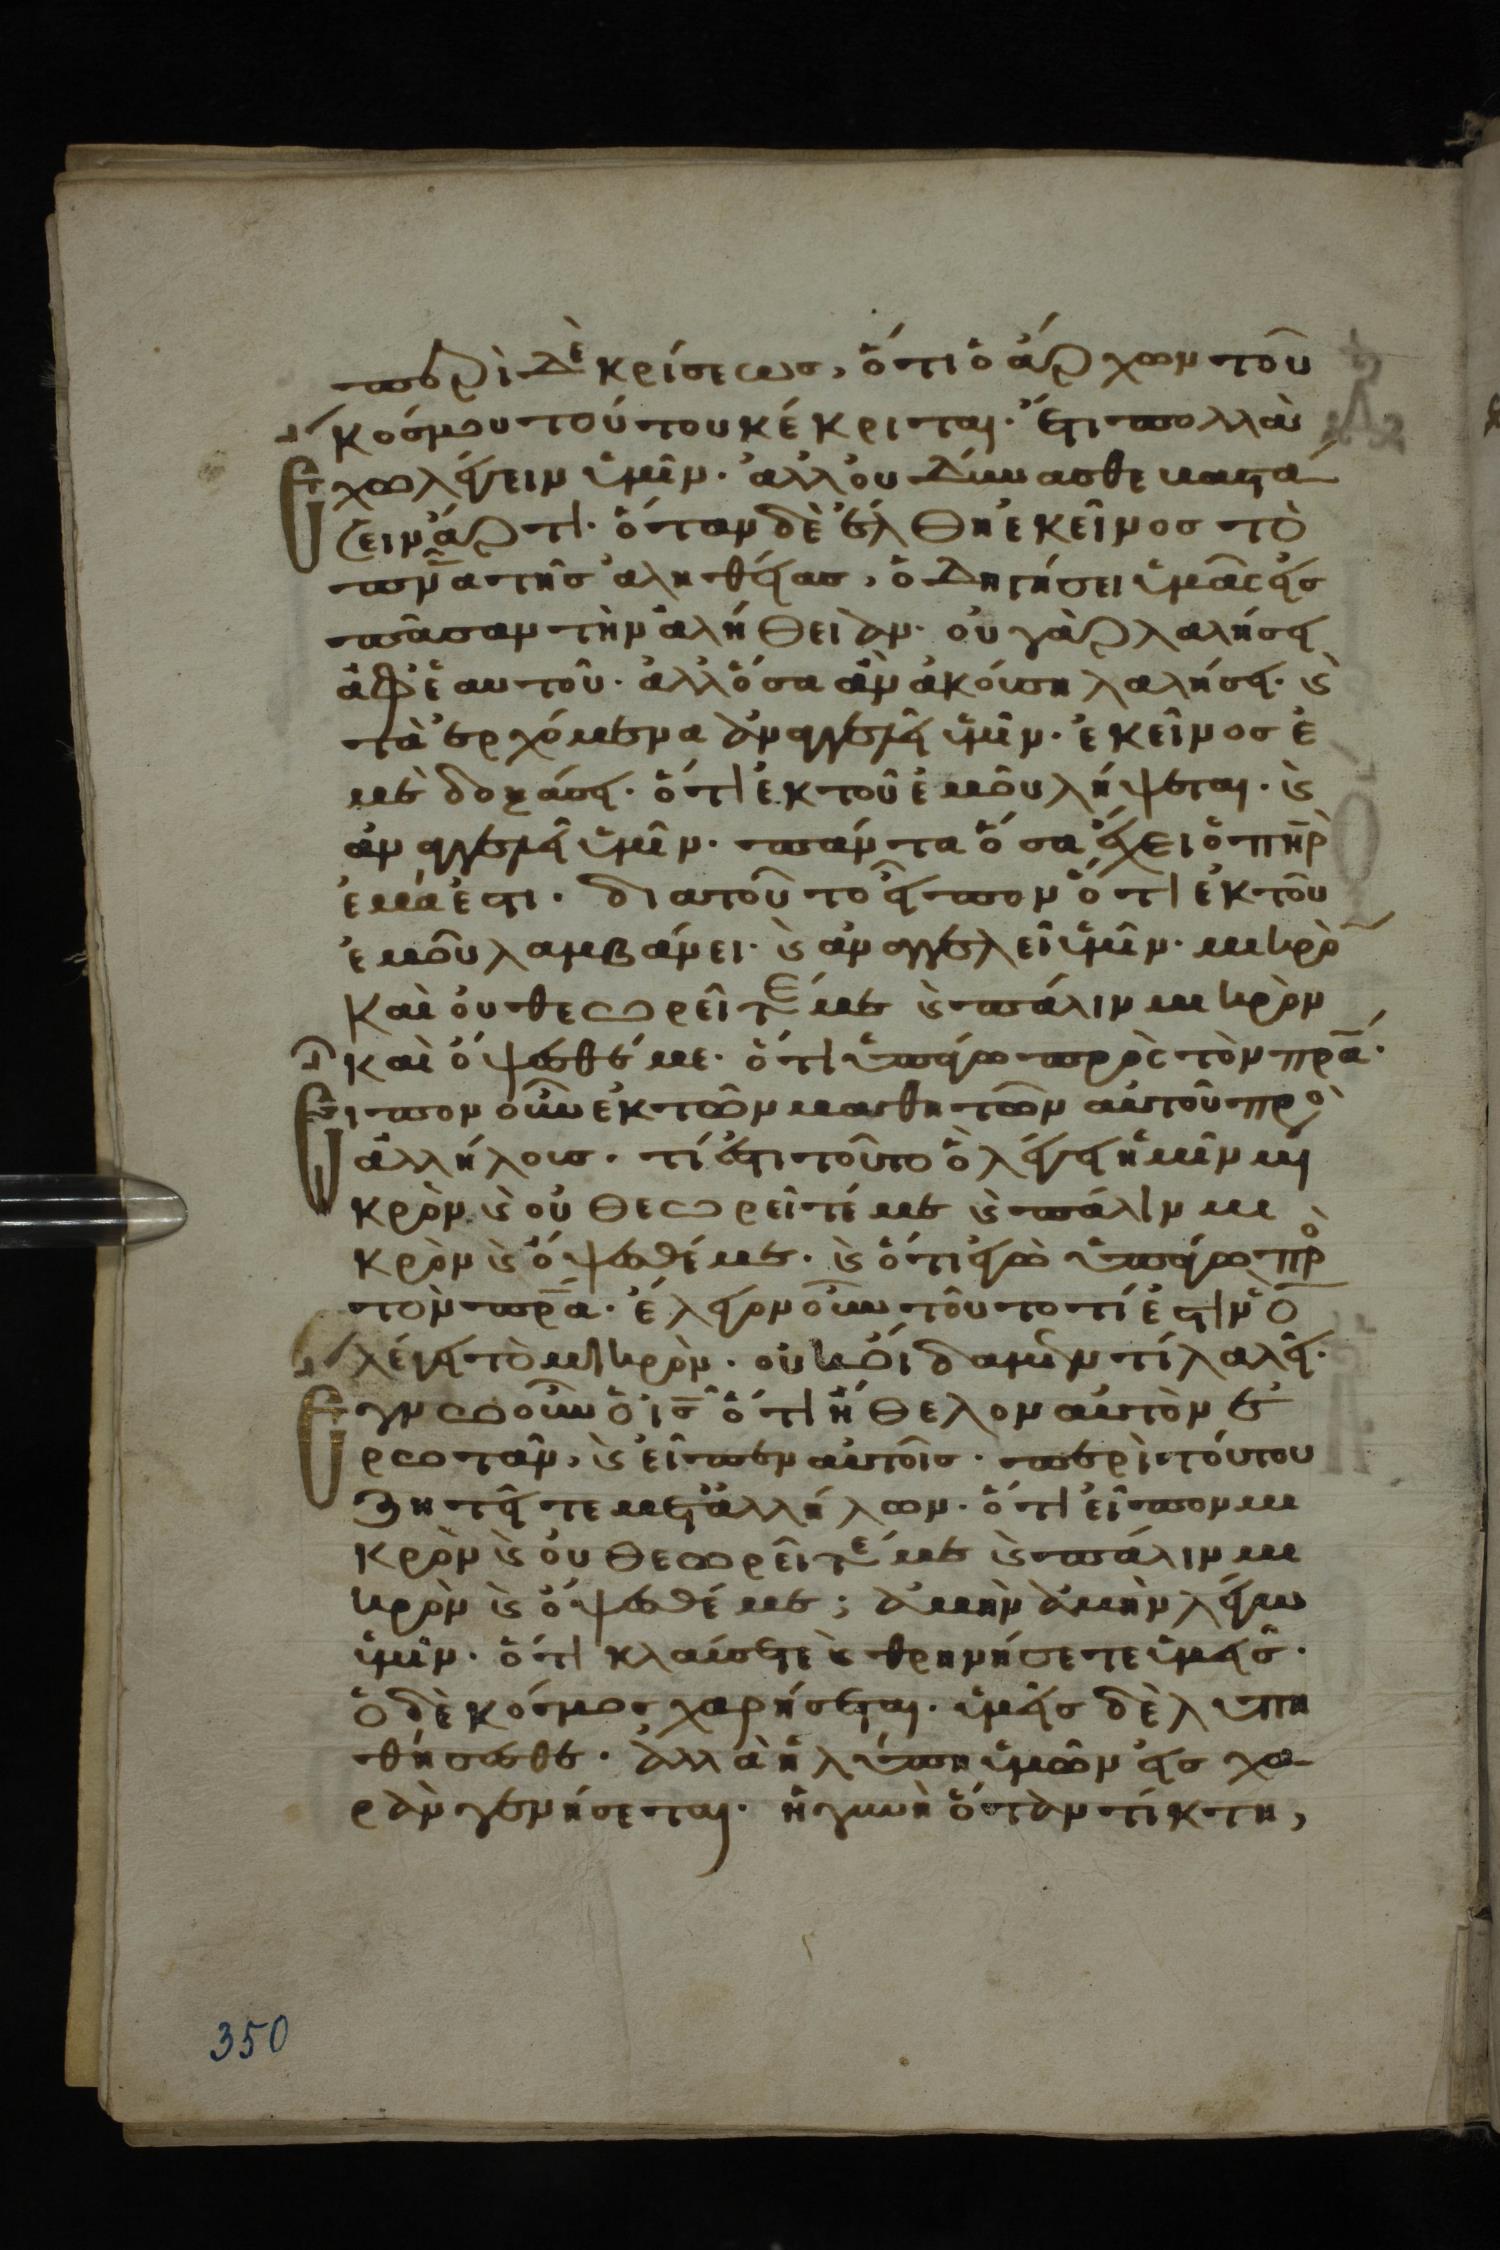 περὶ δὲ κρίσεως, ὅτι ὁ ἄρχων τοῦ
κόσμου τούτου κέκριται· ἔτι πολλὰ
ἔχω λέγειν ὑμῖν· ἀλλ' οὐ δύνασθε βαστά
ζειν ἄρτι· ὅταν δὲ ἔλθη ἐκεῖνος τὸ
πν̅α τῆς ἀληθείας, ὁδηγήσει ὑμᾶς εἰς
πᾶσαν τὴν ἀλήθειαν· οὐ γὰρ λαλήσει
ἀφ' ἑαυτοῦ· ἀλλ' ὅσα ἂν ἀκούση λαλήσει· ϗ
τὰ ἐρχόμενα ἀναγγελεῖ ὑμῖν· ἐκεῖνος ἐ
μὲ δοξάσει· ὅτι ἐκ τοῦ ἐμοῦ λήψεται· ϗ
ἀναγγελεῖ ὑμῖν· πάντα ὅσα ἔχει ὁ πη̅ρ
ἐμά ἐστι· διατοῦτο εἶπον ὅτι ἐκ τοῦ
ἐμοῦ λαμβάνει· ϗ ἀναγγελεῖ ὑμῖν· μικρὸ̅
καὶ οὐ θεωρεῖτέ με ϗ πάλιν μικρὸν
καὶ ὄψεσθέ με· ὅτι ὑπάγω πρὸς τὸν πρ̅α·
Εἶπον οὖν ἐκ τῶν μαθητῶν αὐτοῦ πρὸ
ἀλλήλους· τί ἐστι τοῦτο ὃ λέγει ἡμῖν μι
κρὸν ϗ οὐ θεωρεῖτέ με ϗ πάλιν μι
κρὸν ϗ ὄψεσθέ με· ϗ ὅτι ἐγὼ ὑπάγω πρὸ
τὸν πρ̅α· ἔλεγον οὖν τοῦτο τί ἐστιν ὃ
λέγει τὸ μικρὸν· οὐκ οἴδαμεν τί λαλεῖ·
Ἔγνω οὖν ὁ ι̅ς ὅτι ἤθελον αὐτὸν ἐ
ρωτᾶν, ϗ εἶπεν αὐτοῖς· περὶ τούτου
ζητεῖτε μετ' ἀλλήλων· ὅτι εἶπον μι
κρὸν ϗ οὐ θεωρεῖτέ με ϗ πάλιν μι
κρὸν ϗ ὄψεσθέ με; ἀμὴν ἀμὴν λέγω
ὑμῖν· ὅτι κλαύσετε ϗ θρηνήσετε ὑμεῖς·
ὁ δὲ κόσμος χαρήσεται· ὑμεῖς δὲ λυπη
θήσεσθε· ἀλλὰ ἡ λύπη ὑμῶν εἰς χα
ρὰν γενήσεται· ἡ γυνὴ ὅταν τίκτη,
350